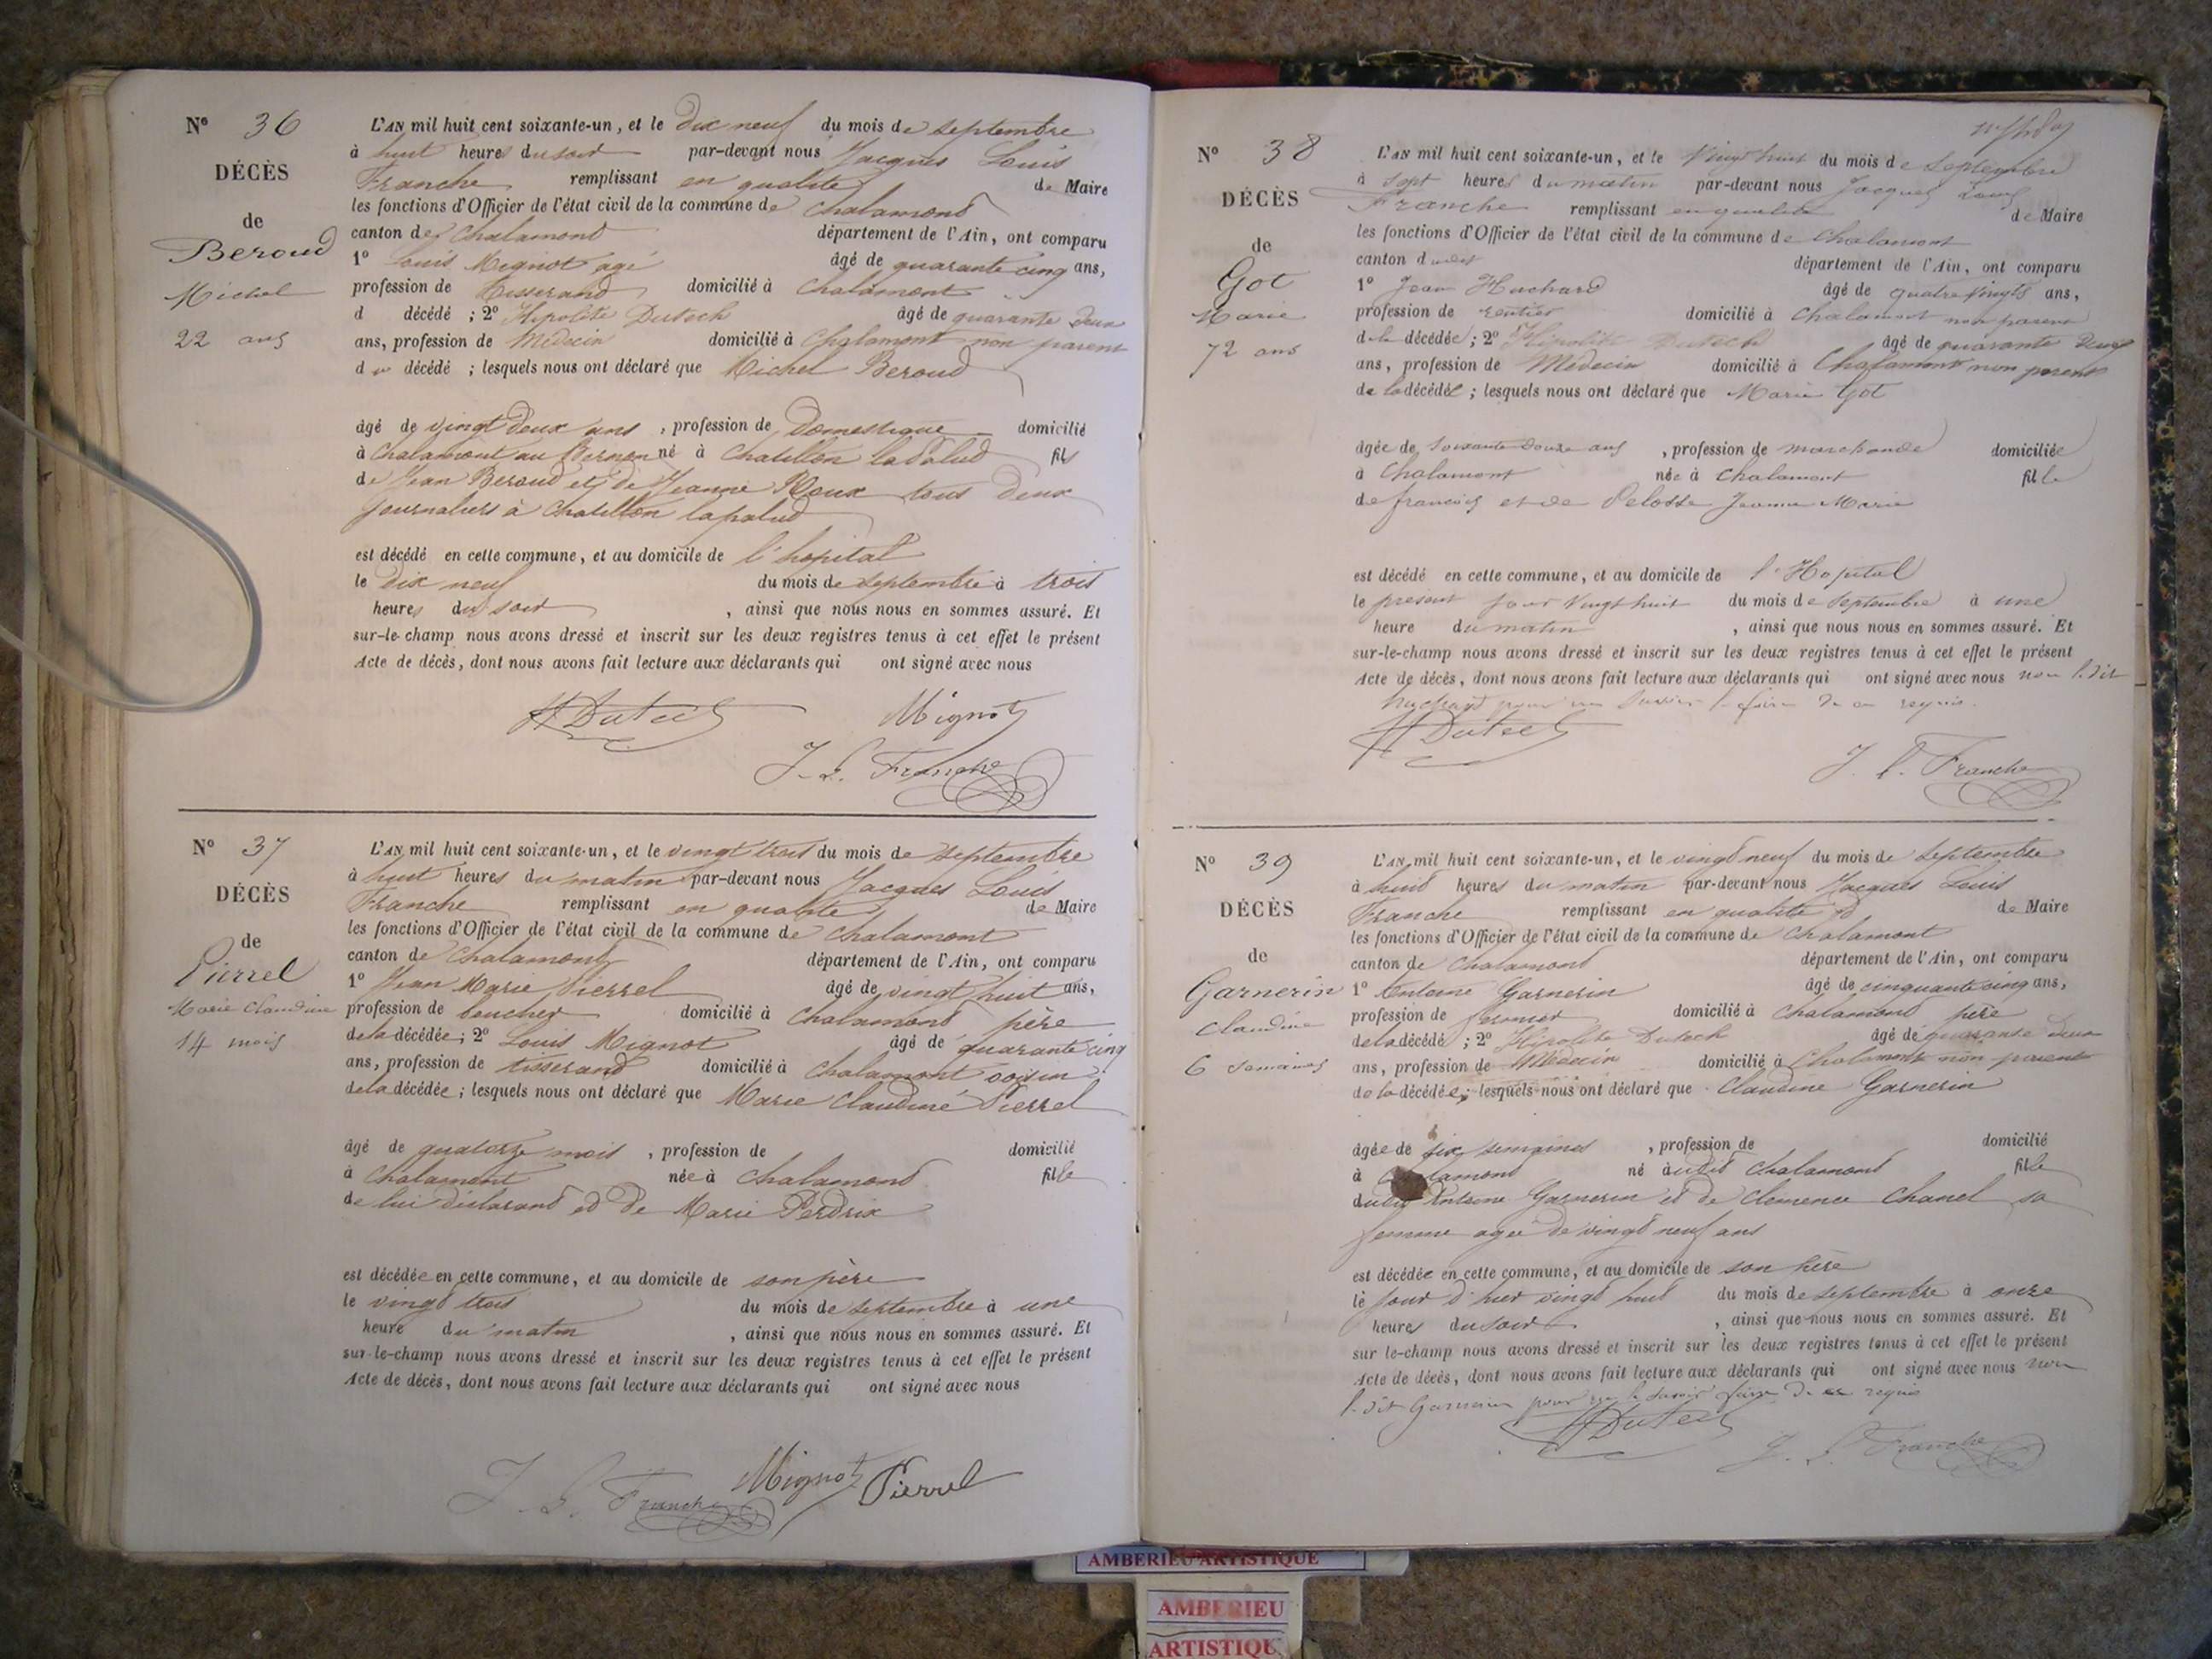 N° 36
DÉCÈS
de
Beroud
Michel
22 ans
L'AN mil huit cent soixante-un, et le dix neuf du mois de septembre
à huit heures du soir par-devant nous Jacques Louis
Franche remplissant en qualité de Maire
les fonctions d'Officier de l'état civil de la commune de Chalamont
canton de Chalamont département de l'Ain, ont comparu
1° Louis Mignot agé âgé de quarante cinq ans,
profession de tisserand domicilié à Chalamont
d décédé ; 2° Hipolite Dutech âgé de quarante deux
ans, profession de Médecin domicilié à Chalamont non parent
du décédé ; lesquels nous ont déclaré que Michel Beroud
âgé de vingt deux ans , profession de Domestique domicilié
à Chalamont au né à Chatillon lapalud fils
de Jean Beroud et de Jeanne Roux tous deux
journaliers à Chatillon lapalud
est décédé en cette commune, et au domicile de l'hopital
le dix neuf du mois de septembre à trois
heures du soir , ainsi que nous nous en sommes assuré. Et
sur-le-champ nous avons dressé et inscrit sur les deux registres tenus à cet effet le présent
Acte de décès, dont nous avons fait lecture aux déclarants qui ont signé avec nous
H Dutech Mignot
J. L. Franche
N° 37
DÉCÈS
de
Pierrel
Marie Claudine
14 mois
L'AN mil huit cent soixante-un, et le vingt trois du mois de septembre
à huit heures du matin par-devant nous Jacques Louis
Franche remplissant en qualité de Maire
les fonctions d'Officier de l'état civil de la commune de Chalamont
canton de Chalamont département de l'Ain, ont comparu
1° Jean Marie Pierrel âgé de vingt huit ans,
profession de boucher domicilié à Chalamont père
de la décédée ; 2° Louis Mignot âgé de quarante cinq
ans, profession de tisserand domicilié à Chalamont voisin
de la décédée ; lesquels nous ont déclaré que Marie Claudine Pierrel
âgé de quatorze mois , profession de domicilié
à Chalamont née à Chalamont fille
de lui déclarant et de Marie Perdrix
est décédée en cette commune, et au domicile de son père
le vingt trois du mois de septembre à une
heure du matin , ainsi que nous nous en sommes assuré. Et
sur-le-champ nous avons dressé et inscrit sur les deux registres tenus à cet effet le présent
Acte de décès, dont nous avons fait lecture aux déclarants qui ont signé avec nous
J. L. Franche Mignot Pierrel
N° 38
DÉCÈS
de
Got
Marie
72 ans
L'AN mil huit cent soixante-un, et le vingt huit du mois de septembre
à sept heures du matin par-devant nous Jacques Louis
Franche remplissant en qualité de Maire
les fonctions d'Officier de l'état civil de la commune de Chalamont
canton dudit département de l'Ain, ont comparu
1° Jean Huchard âgé de quatre vingts ans,
profession de rentier domicilié à Chalamont non parent
de la décédée ; 2° Hipolite Dutech âgé de quarante deux
ans, profession de Médecin domicilié à Chalamont non parent
de la décédée ; lesquels nous ont déclaré que Marie Got
âgée de soixante douze ans , profession de marchande domiciliée
à Chalamont née à Chalamont fille
de francois et de Pelosse Jeanne Marie
est décédé en cette commune, et au domicile de l'Hopital
le present jour vingt huit du mois de septembre à une
heure du matin , ainsi que nous nous en sommes assuré. Et
sur-le-champ nous avons dressé et inscrit sur les deux registres tenus à cet effet le présent
Acte de décès, dont nous avons fait lecture aux déclarants qui ont signé avec nous non l. dit
huchard pour ne savoir le faire de ce requis.
H Dutech
J. L. Franche
N° 39
DÉCÈS
de
Garnerin
Claudine
6 semaines
L'AN mil huit cent soixante-un, et le vingt neuf du mois de septembre
à huit heures du matin par-devant nous Jacques Louis
Franche remplissant en qualité d de Maire
les fonctions d'Officier de l'état civil de la commune de Chalamont
canton de Chalamont département de l'Ain, ont comparu
1° Antoine Garnerin âgé de cinquante cinq ans,
profession de fermier domicilié à Chalamont père
de la décédé ; 2° Hipolite Dutech âgé de quarante deux
ans, profession de Médecin domicilié à Chalamont non parent
de la décédée ; lesquels nous ont déclaré que Claudine Garnerin
âgée de six semaines , profession de domicilié
à Chalamont né audit Chalamont fille
dudit Antoine Garnerin et de Clemence Chanel sa
femme agée de vingt neuf ans
est décédée en cette commune, et au domicile de son père
le jour d'hier vingt huit du mois de septembre à onze
heures du soir , ainsi que nous nous en sommes assuré. Et
sur le-champ nous avons dressé et inscrit sur les deux registres tenus à cet effet le présent
Acte de décès, dont nous avons fait lecture aux déclarants qui ont signé avec nous non
l. dit Garnerin pour ne le savoir faire de ce requis
H Dutech
J. L. Franche
AMBERIEU ARTISTIQUE
AMBERIEU
ARTISTIQU